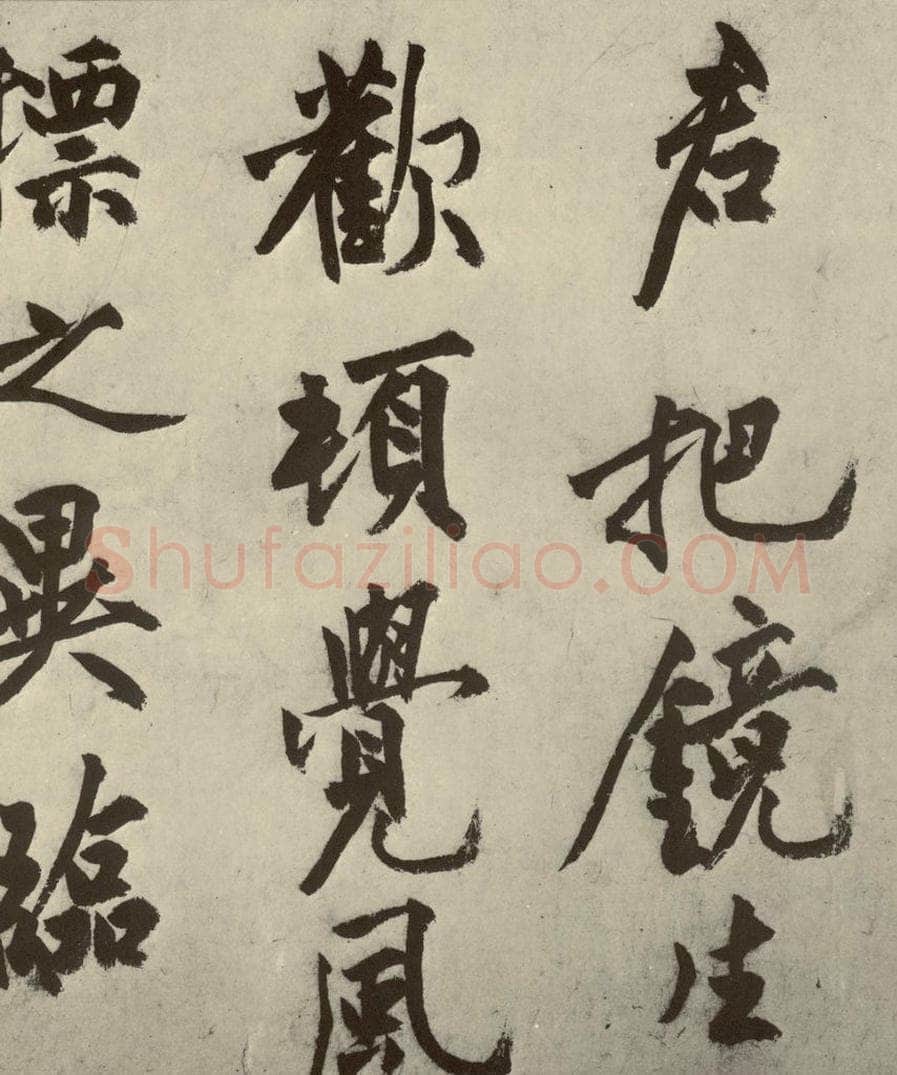 君把鏡生
歡頓覺風
標之異臨
Shufaziliao.COM